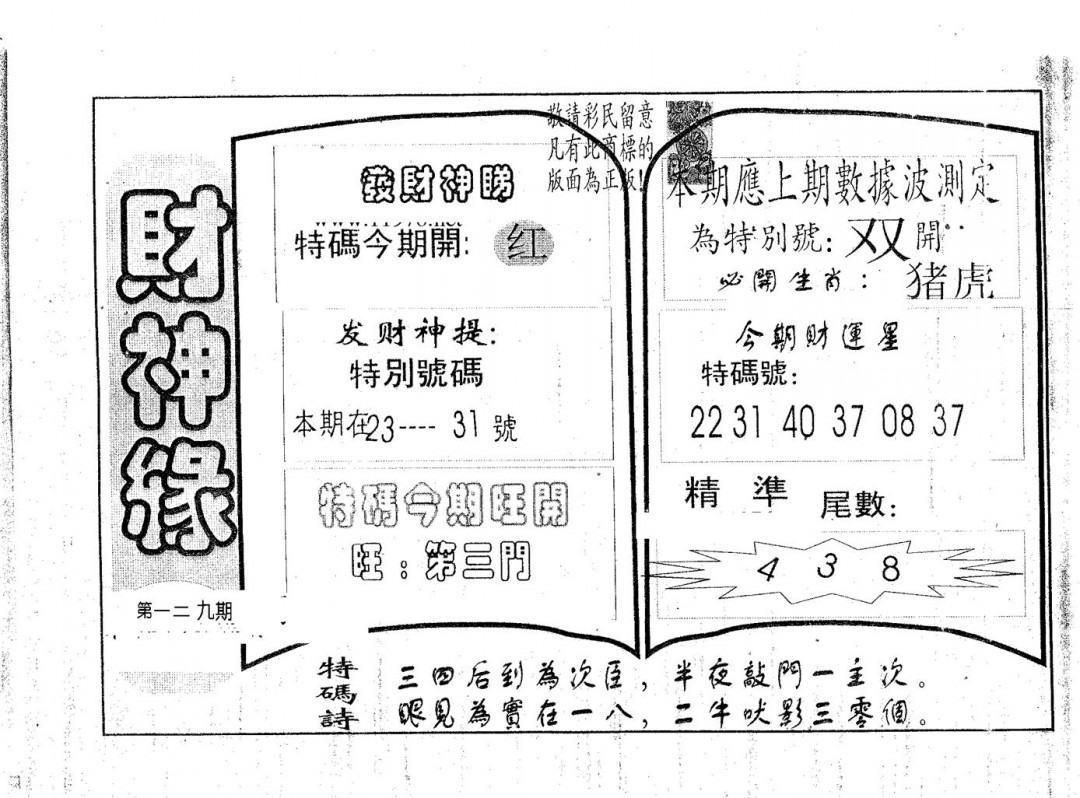 財神緣
第一二九期
敬請彩民留意
凡有此商標的
版面為正版!
發財神睇
特碼今期開: 红
发财神提:
特別號碼
本期在23----31號
特碼今期旺開
旺:第三門
本期應上期數據波測定
為特別號: 双 開
必開生肖: 猪虎
今期財運星
特碼號:
22 31 40 37 08 37
精準 尾數:
4 3 8
特碼詩
三四后到為次臣,半夜敲門一主次。
眼見為實在一八,二牛吠影三零個。